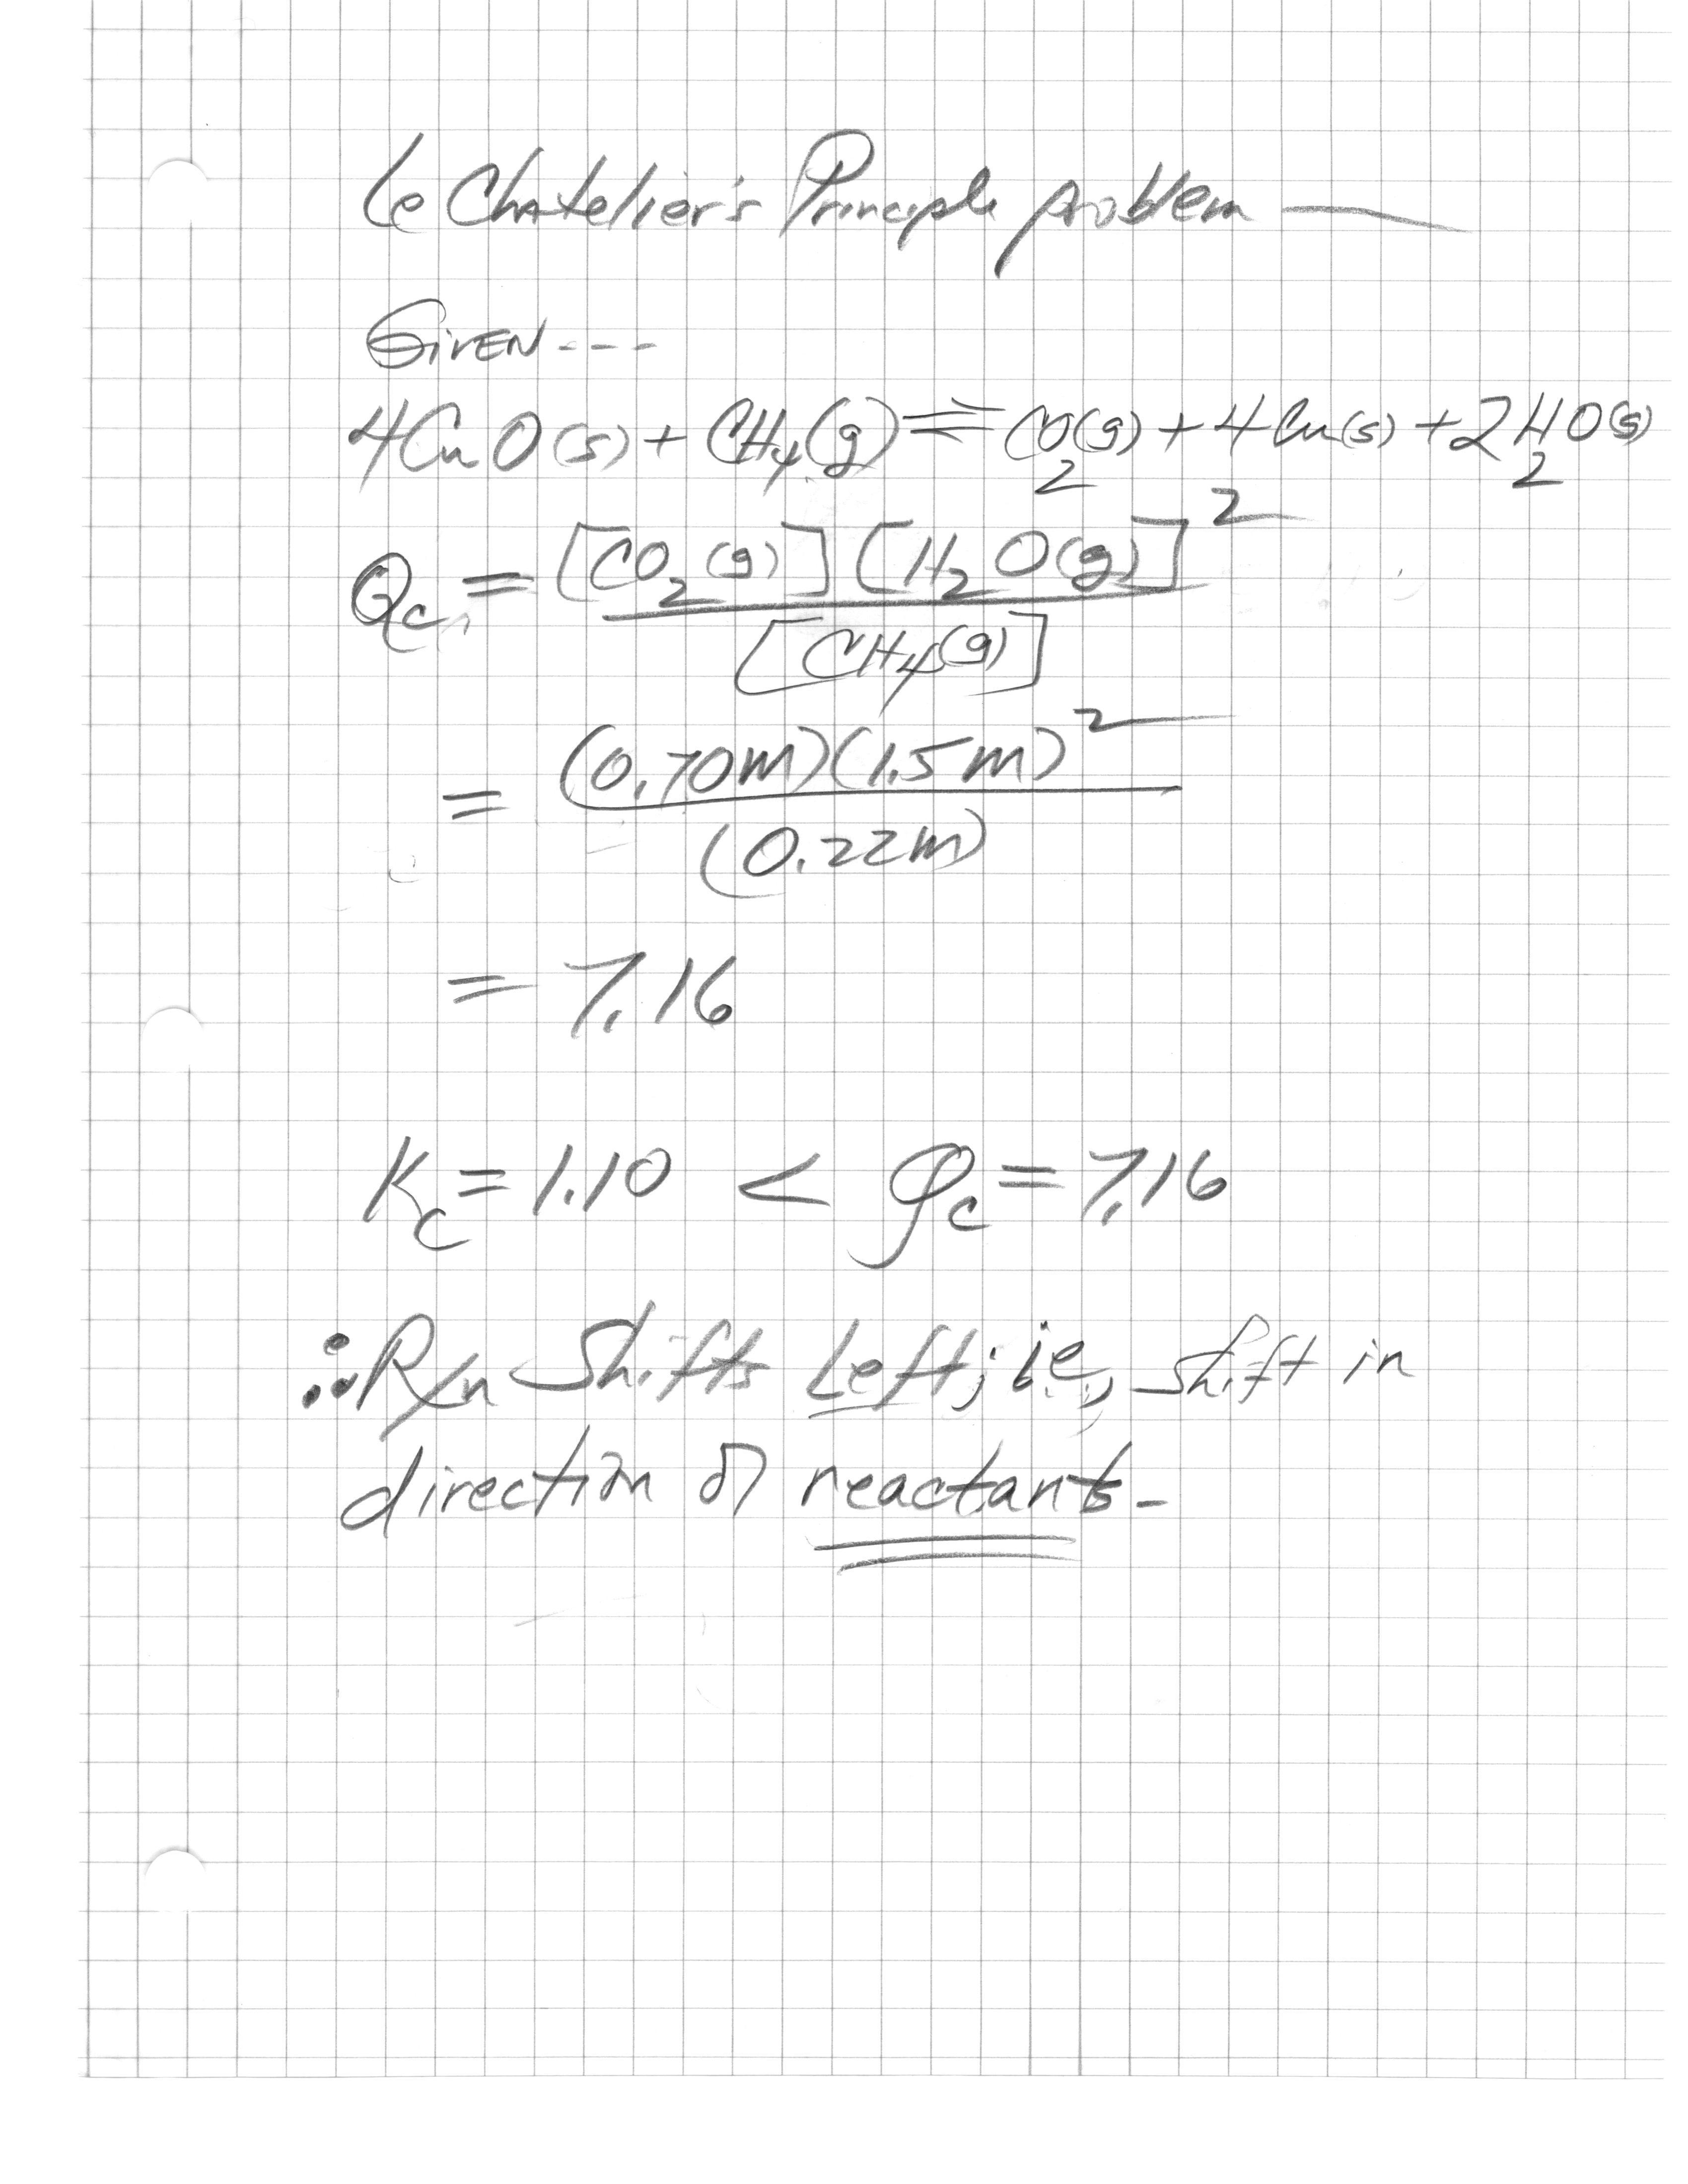 Le Chatelier's Principle problem —
GivEN ---
4CuO(s) + CH₄(g) ⇌ CO₂(g) + 4Cu(s) + 2H₂O(g)
Qc = [CO₂(g)][H₂O(g)]²
[CH₄(g)]
= (0.70m)(1.5m)²
(0.22m)
= 7.16
Kc = 1.10 < Qc = 7.16
∴ Rxn Shifts Left; ie, shift in
direction of reactants -